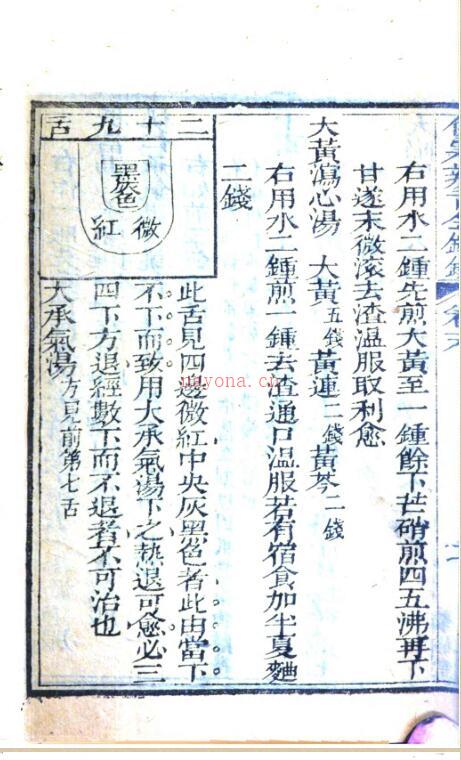 右用水二鍾先煎大黃至一鍾餘下芒硝煎四五沸再下
甘遂末微滾去渣溫服取利愈
大黃瀉心湯 大黃五錢黃連二錢黃芩二錢
右用水二鍾煎一鍾去渣通口溫服若有宿食加半夏麯
二錢
二十九舌
黑灰色
微紅
此舌見四邊微紅中央灰黑色者此由當下
不下而致用大承氣湯下之熱退可愈必三
四下方退經數下而不退者不可治也
大承氣湯方見前第七舌
nayona.cn